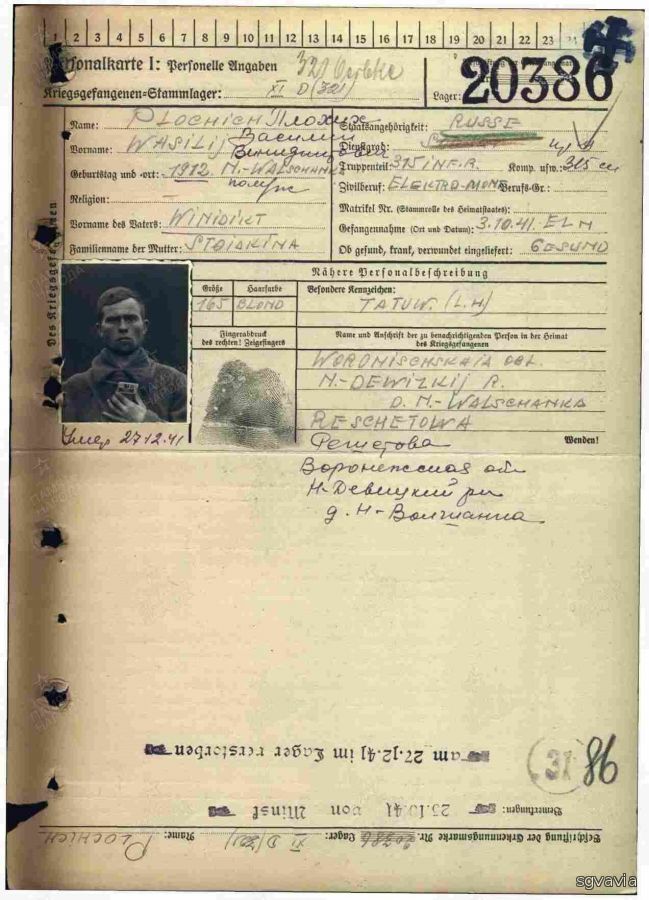 1 2 3 4 5 6 7 8 9 10 11 12 13 14 15 16 17 18 19 20 21 22 23 24
Personalkarte I: Personelle Angaben
321
Kriegsgefangenen-Stammlager: XI D (321)
Lager: 20386
Name: PLOCHICH Плохих
Vorname: WASILIJ Василий
Винидиктович
Geburtstag und -ort: 1912. N-WALSCHANKA
Religion: –
Vorname des Vaters: WINIDIKT
Familienname der Mutter: STOIAKINA
Staatsangehörigkeit: RUSSE
Dienstgrad:
Truppenteil: 315 INF.R. Komp. usw.: 315
Zivilberuf: ELEKTRO-MONT Berufs-Gr.:
Matrikel Nr. (Stammrolle des Heimatstaates):
Gefangennahme (Ort und Datum): 3.10.41. ELN
Ob gesund, krank, verwundet eingeliefert: GESUND
Des Kriegsgefangenen
Nähere Personalbeschreibung
Größe Haarfarbe
165 BLOND
Besondere Kennzeichen:
TATUW. (L.H)
Fingerabdruck
des rechten! Zeigefingers
Name und Anschrift der zu benachrichtigenden Person in der Heimat
des Kriegsgefangenen
WORONISCHSKAIA OBL.
N-DEWIZKIJ R.
D. N-WALSCHANKA
RESCHETOWA
Умер 27.12.41
Wenden!
Решетова
Воронежская обл
Н-Девицкий рн
д. Н-Волшанка
am 27.12.41 im Lager verstorben
31 86
Bemerkungen: 25.10.41 von Minsk
Beschriftung der Erkennungsmarke Nr. 20386 Lager: XI D (321) Name: PLOCHICH
sgvavia